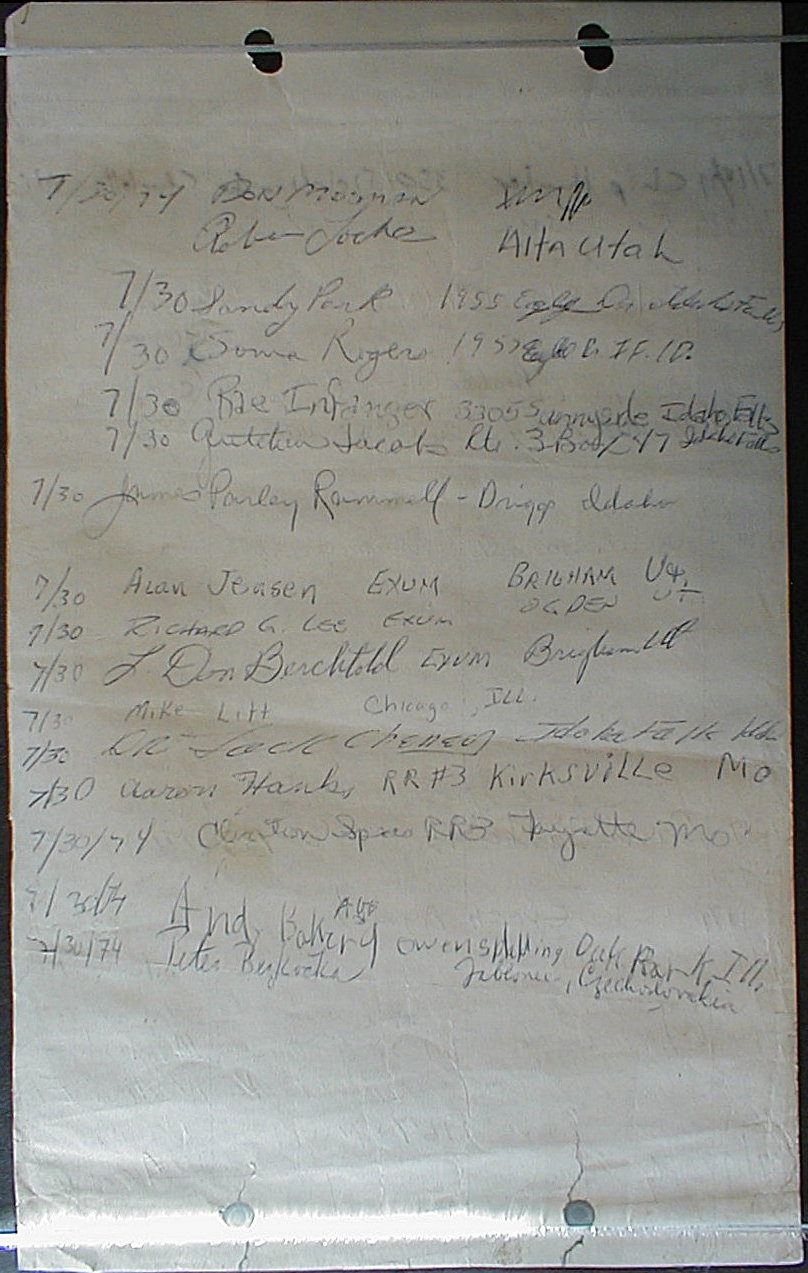 7/30/74 Don Mosman
Robin Alta Utah
7/30 Sandy Park 1955 Idaho Falls
7/30 Rogers 195 I.F. ID.
7/30 Rae Infanger 3305 Sunnyside Idaho Falls
7/30 Gretchen Jacobs Rt. 3 Box 47 Idaho Falls
7/30 James Parley Rammell - Driggs Idaho
7/30 Alan Jensen Exum Brigham Ut.
7/30 Richard G. Lee Exum Ogden UT
7/30 L. Don Berchtold Exum Brigham Ut
7/30 Mike Litt Chicago, Ill.
7/30 DR Jack Cheney Idaho Falls Ida
7/30 Aaron Hanks RR #3 Kirksville Mo
7/30/74 Clinton RR3 Fayette Mo
7/30/74 Oak Park, Ill,
7/30/74 Peter Czechoslovakia